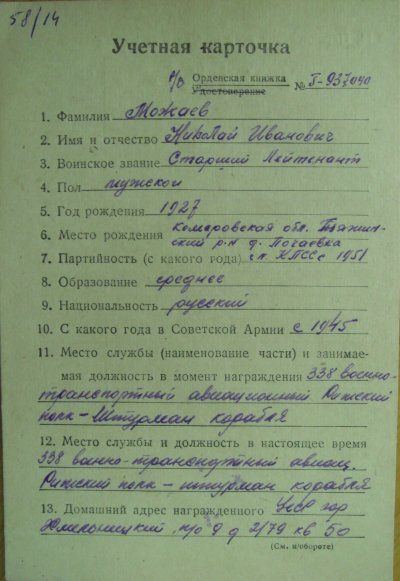 58/14
Учетная карточка
Орденская книжка
Удостоверение
№ Г-937040
1. Фамилия Можаев
2. Имя и отчество Николай Иванович
3. Воинское звание Старший Лейтенант
4. Пол мужской
5. Год рождения 1927
6. Место рождения Кемеровская обл. Тяжин-
ский р-н д. Почаевка
7. Партийность (с какого года) КПСС с 1951
8. Образование среднее
9. Национальность русский
10. С какого года в Советской Армии с 1945
11. Место службы (наименование части) и занимае-
мая должность в момент награждения 338 военно-
транспортный авиационный Рижский
полк - Штурман корабля
12. Место службы и должность в настоящее время
338 военно-транспортный авиац.
Рижский полк - штурман корабля
13. Домашний адрес награжденного УССР гор
Хмельницкий п/о 9 д 2/79 кв 50
(См. н/обороте)